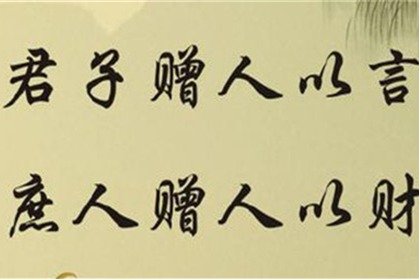 君子赠人以言
庶人赠人以财